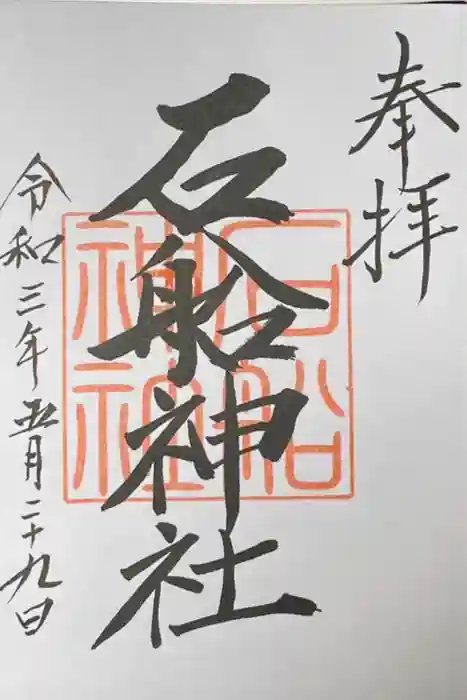 奉拝
石船神社
石船
神社
令和三年五月二十九日